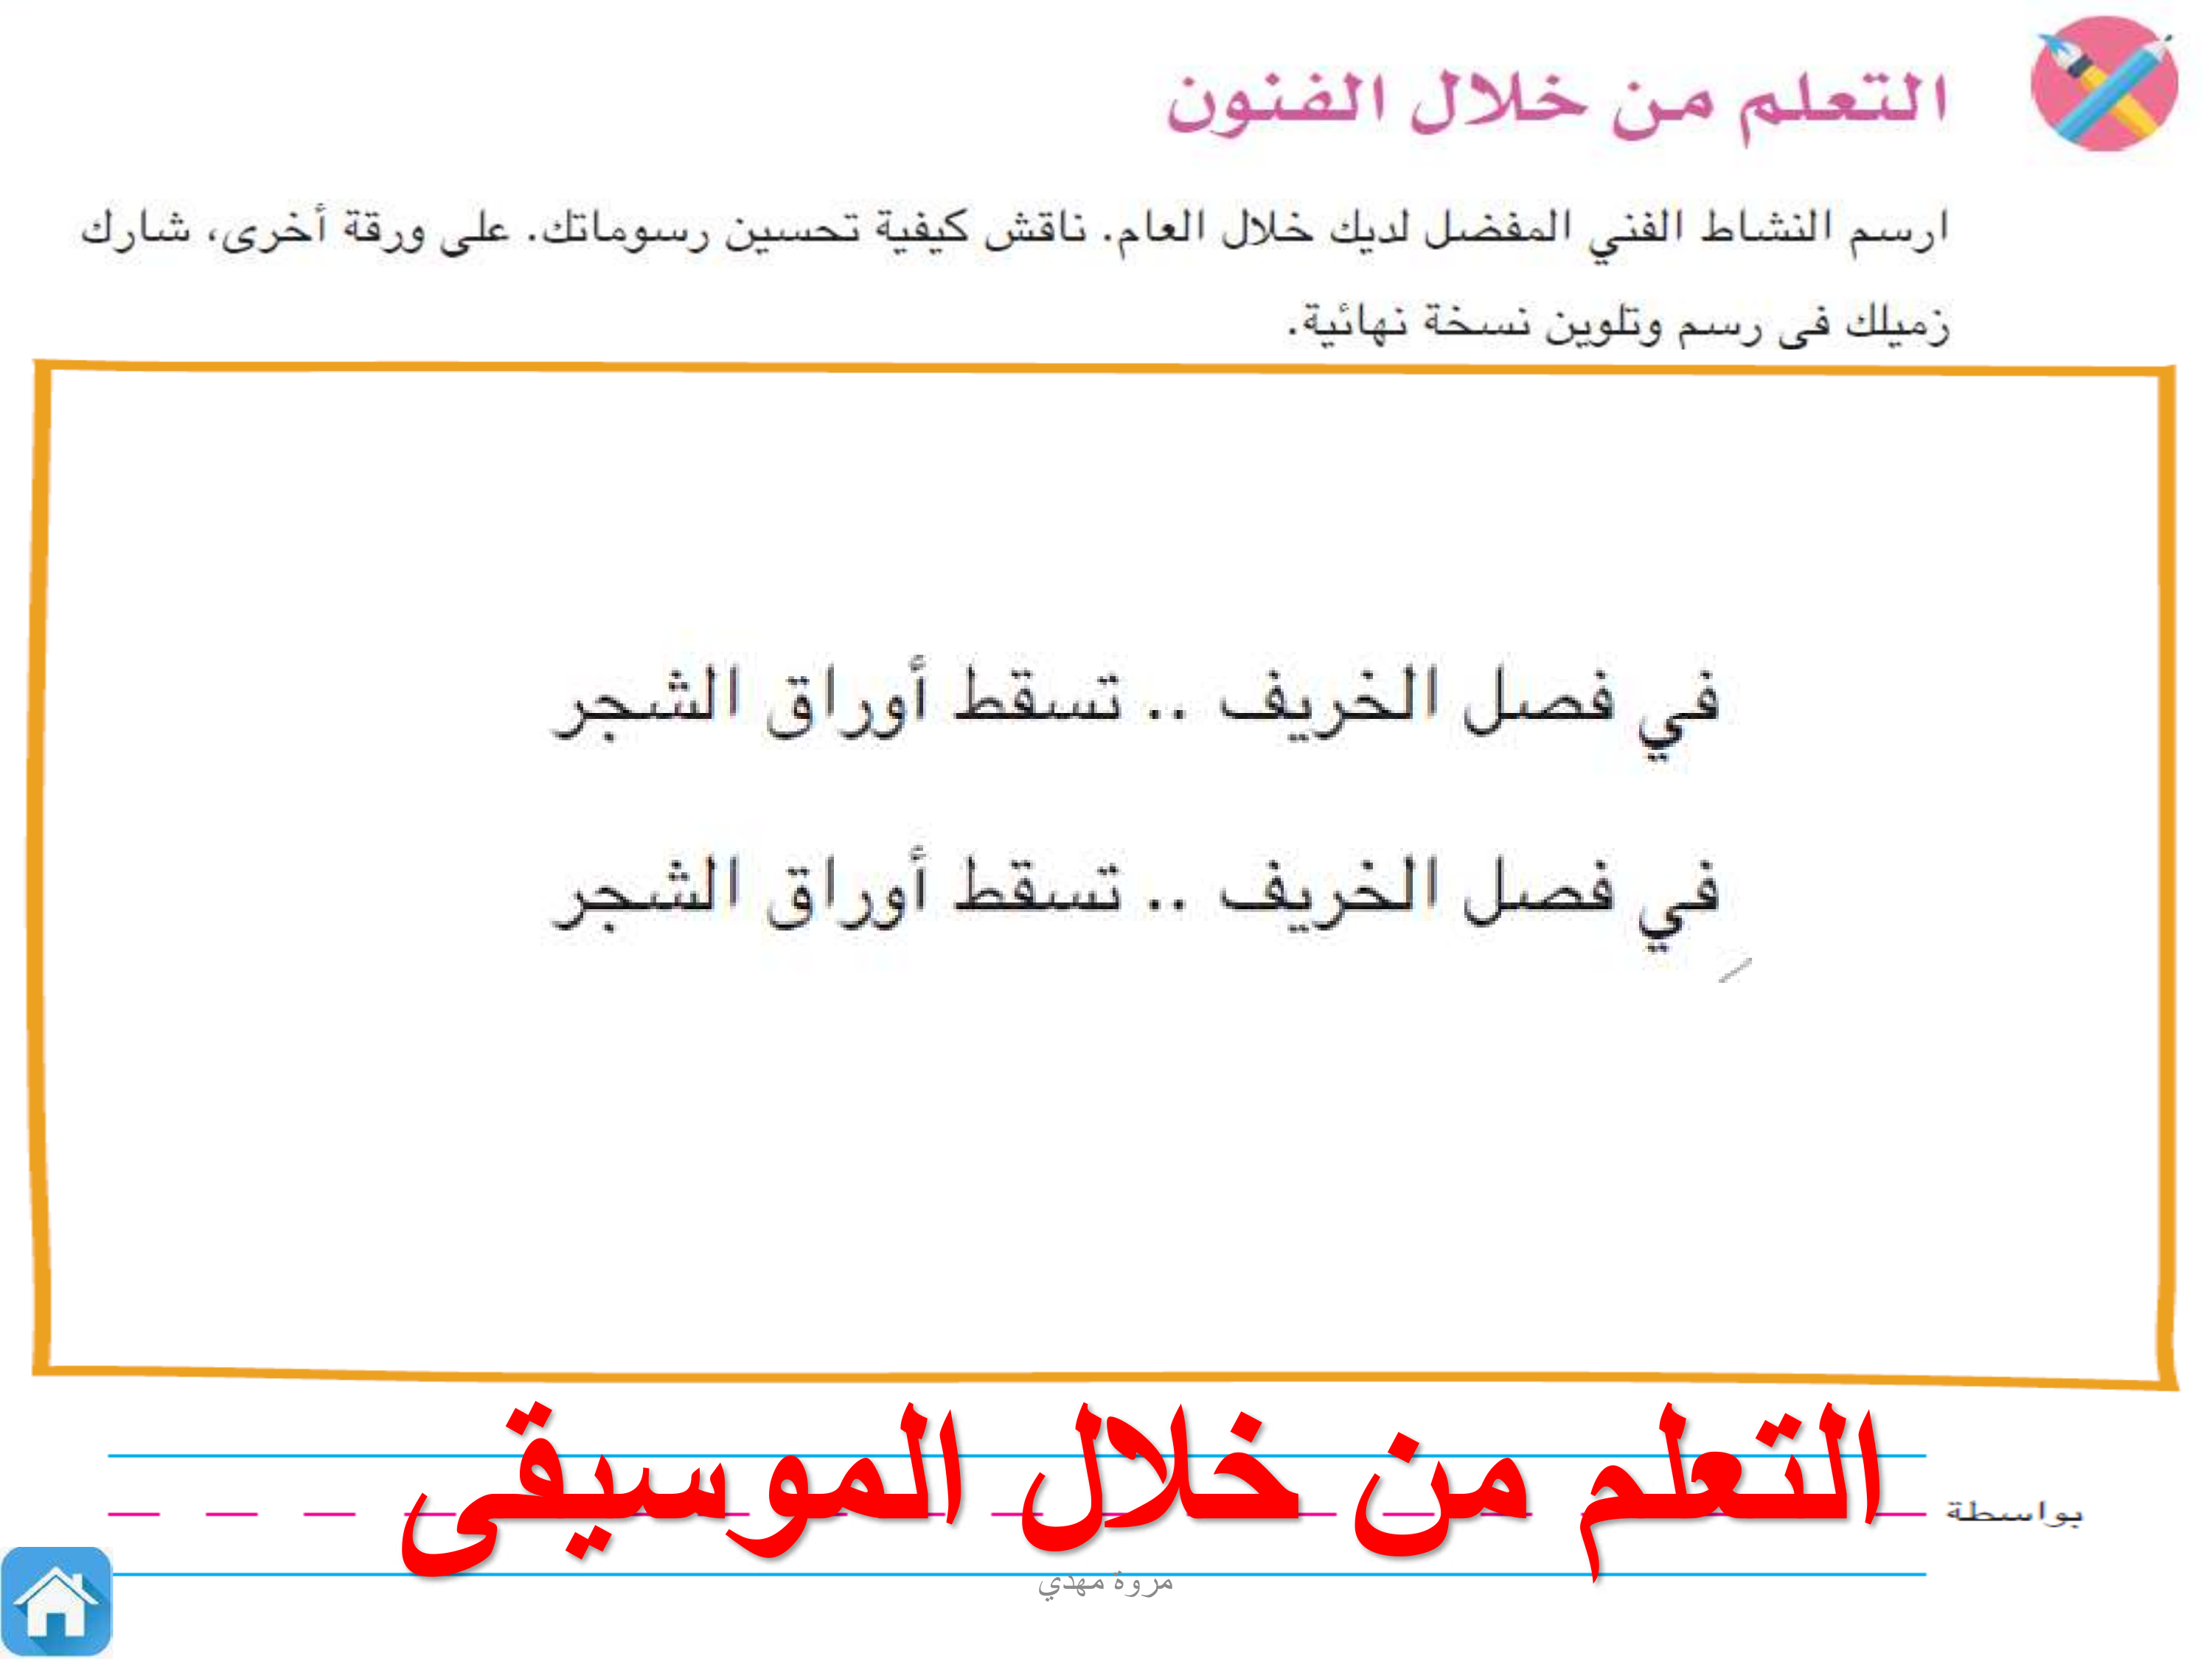 التعلم من خلال الفنون
ارسم النشاط الفني المفضل لديك خلال العام. ناقش كيفية تحسين رسوماتك. على ورقة أخرى، شارك
زميلك فى رسم وتلوين نسخة نهائية.
في فصل الخريف .. تسقط أوراق الشجر
في فصل الخريف .. تسقط أوراق الشجر
بواسطة التعلم من خلال الموسيقى
مروة مهدي